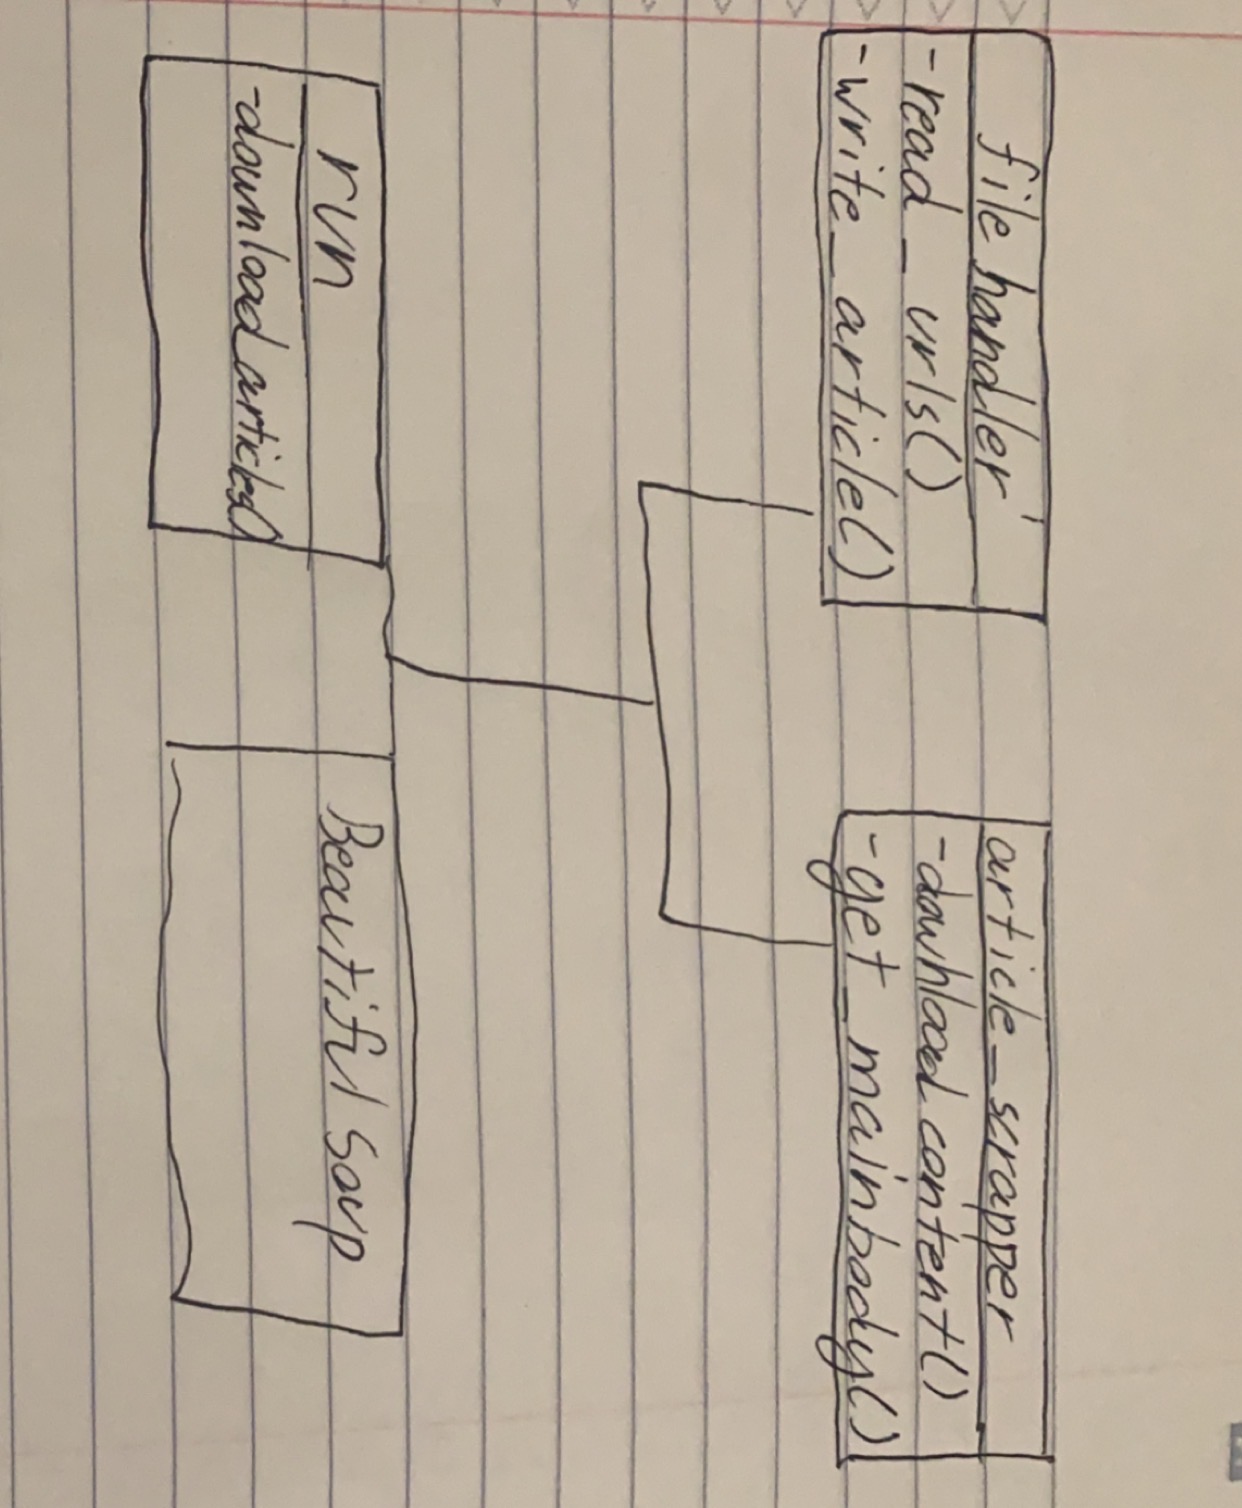 file handler
-read_urls()
-write_article()
article_scrapper
-download content()
-get_mainbody()
run
-download articles()
Beautiful Soup